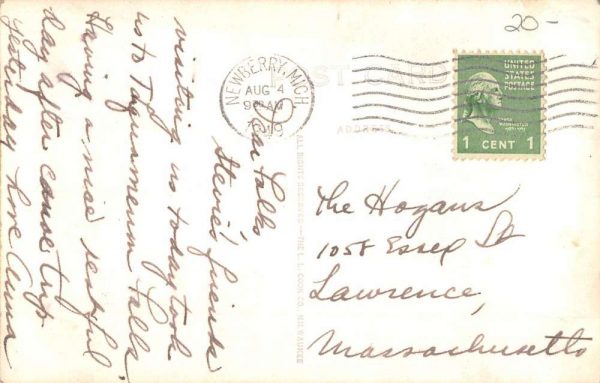 20-
POST CARD
NEWBERRY, MICH.
AUG 4
9 AM
1949
UNITED
STATES
POSTAGE
1 CENT 1
ADDRESS
Dear Folks
Steve's friends
visiting us today took
us to Taquamenon Falls
Having a nice restful
day after canoe trip
yesterday Love Ann
ALL RIGHTS RESERVED — THE L. L. COOK CO. MILWAUKEE
The Hogans
1058 Essex St
Lawrence,
Massachusetts